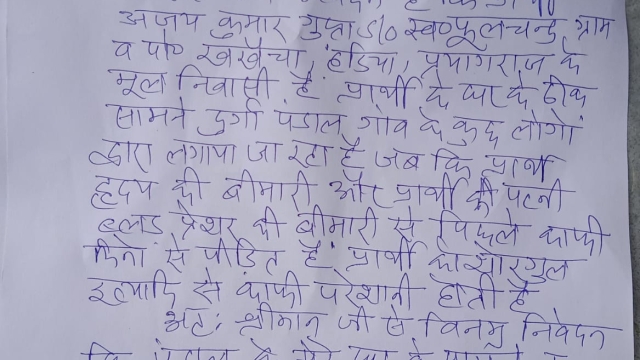 अजय कुमार गुप्ता S/o स्व० फूलचन्द्र ग्राम
व पो० खखैचा, हंडिया, प्रयागराज के
मूल निवासी हैं प्रार्थी के घर के ठीक
सामने दुर्गा पंडाल गांव के कुछ लोगों
द्वारा लगाया जा रहा है जब कि प्रार्थी
हृदय की बीमारी और प्रार्थी की पत्नी
ब्लड प्रेशर की बीमारी से पिछले काफी
दिनों से पीड़ित हैं प्रार्थी को शोरगुल
इत्यादि से काफी परेशानी होती है
अतः श्रीमान जी से विनम्र निवेदन
कि पंडाल